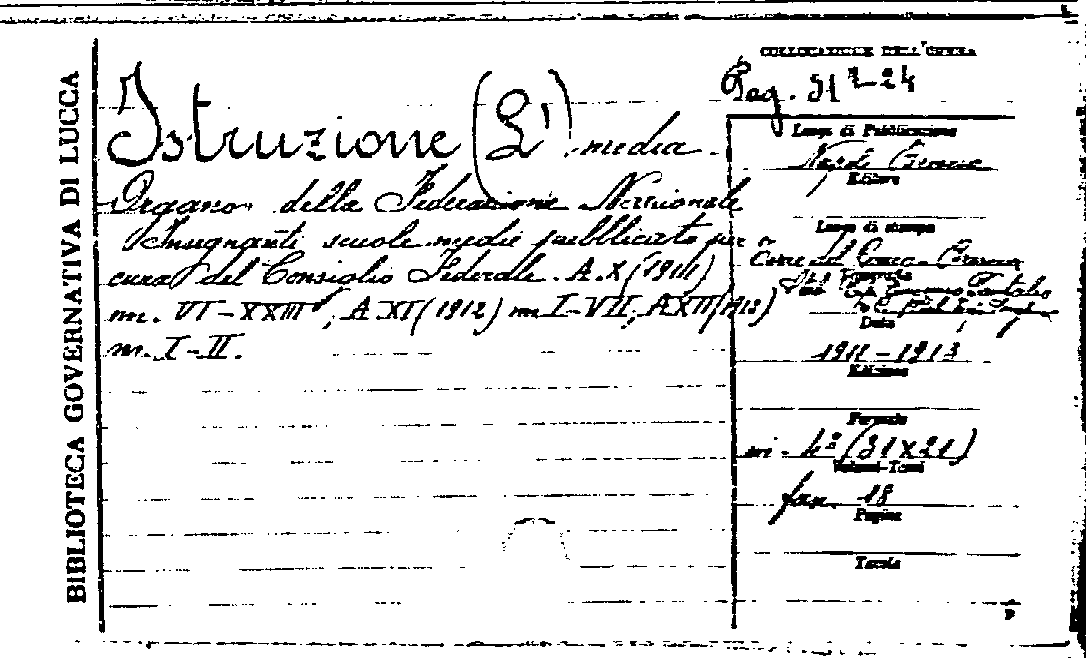 BIBLIOTECA GOVERNATIVA DI LUCCA
COLLOCAZIONE DELL'OPERA
Istruzione (L') media.
Organo della Federazione Nazionale
Insegnanti scuole medie pubblicato per
cura del Consiglio Federale. A. X (1911)
m. VI-XXIII, A XI (1912) m I-VII, A XII (1913)
m. I-II.
Luogo di Pubblicazione
Napoli
Editore
Luogo di stampa
Tipografia
Data
1911-1913
Edizione
Formato
in-4º (31x21)
Volumi-Tomi
fasc. 18
Pagine
Tavole